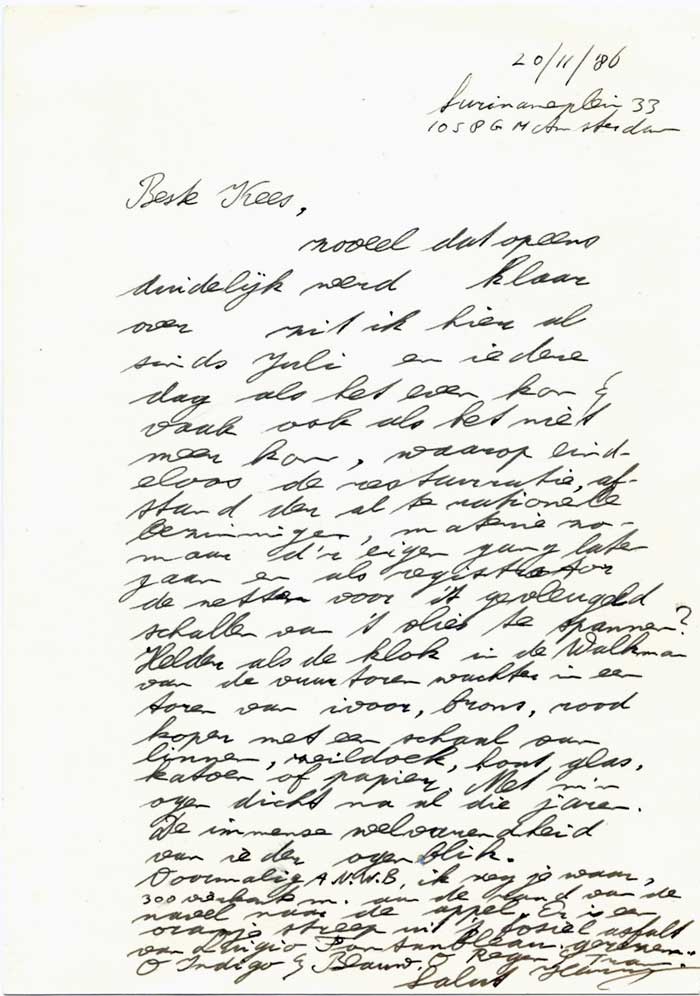 20/11/'86
Surinameplein 33
1058 G M Amsterdam
Beste Kees,
zoveel dat opeens
duidelijk werd klaar
over zit ik hier al
sinds Juli en iedere
dag als het even kon &
vaak ook als het niet
meer kon, waarop eind-
eloos de af-
stand der al te rationele
materie
maar d'r eigen gang laten
gaan en als registrator
de netten voor 't gevleugeld
schallen van 't vlies te spannen?
Helder als de klok in de Walkman
van de vuurtorenwachter in een
toren van ivoor, brons, rood
koper met een schaal van
linnen, zeildoek, hout, glas,
katoen of papier. Met m'n
ogen dicht na al die jaren.
De immense welvarendheid
van ieder ogenblik.
Voormalig A.N.W.B, ik zeg je waar,
300 m. aan de rand van de
navel naar de appel. Er is een
oranje streep uit 't fossiel asfalt
van Luigio
O Indigo & Blauw. O Regen & 
Saluut